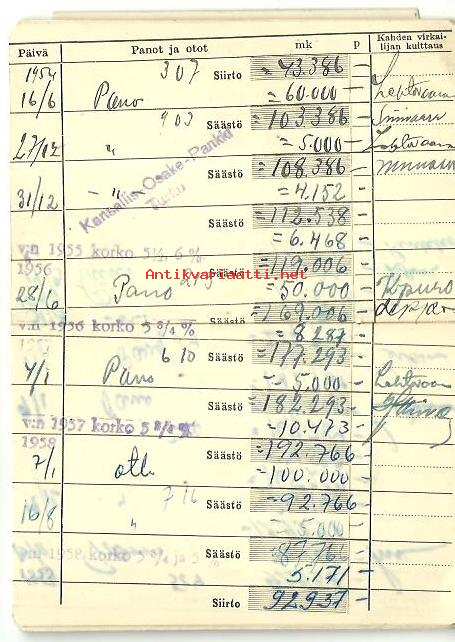 Päivä Panot ja otot mk p Kahden virkailijan kuittaus
1954 307 Siirto =43.386 —
16/6 Pano =60.000 —
903 Säästö =103.386 —
27/12 " =5.000 —
Säästö =108.386 —
31/12 — " — =4.152 —
Kansallis-Osake-Pankki
Turku
Säästö =112.538 —
v:n 1955 korko 5½, 6 % =6.468 —
1956 Säästö =119.006 —
Antikvariaatti.net
28/6 Pano =50.000 —
Säästö =169.006 —
v:n 1956 korko 5 ¾ % =8.287 —
610 Säästö =177.293 —
7/1 Pano — 5.000 —
Säästö =182.293 —
v:n 1957 korko 5 ¾ % —10.473 —
1958 Säästö =192.766 —
7/1 otto —100.000 —
716 Säästö —92.766 —
16/8 " 5.000 —
Säästö 87.766 —
v:n 1958 korko 5 ¾ ja 5 % 5.171 —
Siirto 92937 —